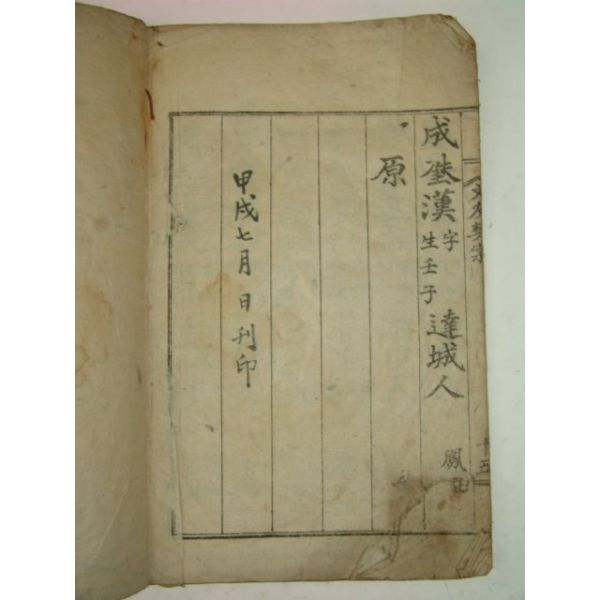 成漢 字 生壬子 達城人 鳳
原
甲戌七月 日刊印